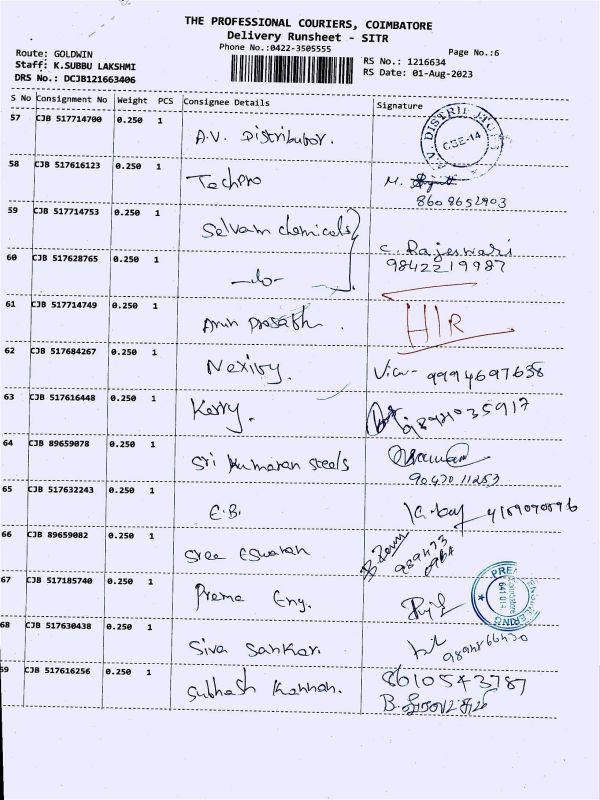 THE PROFESSIONAL COURIERS, COIMBATORE
Delivery Runsheet - SITR
Phone No.:0422-3505555
Page No.:6
Route: GOLDWIN
Staff: K.SUBBU LAKSHMI
DRS No.: DCJB121663406
RS No.: 1216634
RS Date: 01-Aug-2023
S No Consignment No Weight PCS Consignee Details Signature
57 CJB 517714700 0.250 1 A.V. Distributor.
V. DISTRIBUTORS CBE-14
58 CJB 517616123 0.250 1 TechPro M.
8608652903
59 CJB 517714753 0.250 1 Selvam chemicals
C. Rajeswari
60 CJB 517628765 0.250 1 -do- 9842219987
61 CJB 517714749 0.250 1 Arun prasath . HIR
62 CJB 517684267 0.250 1 Nexivy. 9994697658
63 CJB 517616448 0.250 1 Kerry.
64 CJB 89659078 0.250 1 Sri Kumaran steels
9047011253
65 CJB 517632243 0.250 1 E.B.
66 CJB 89659082 0.250 1 Sree Eswaran
67 CJB 517185740 0.250 1 Prema Eng.
Coimbatore
641 014
68 CJB 517630438 0.250 1 Siva Sankar.
69 CJB 517616256 0.250 1 Subhash Kannan. 8610543787